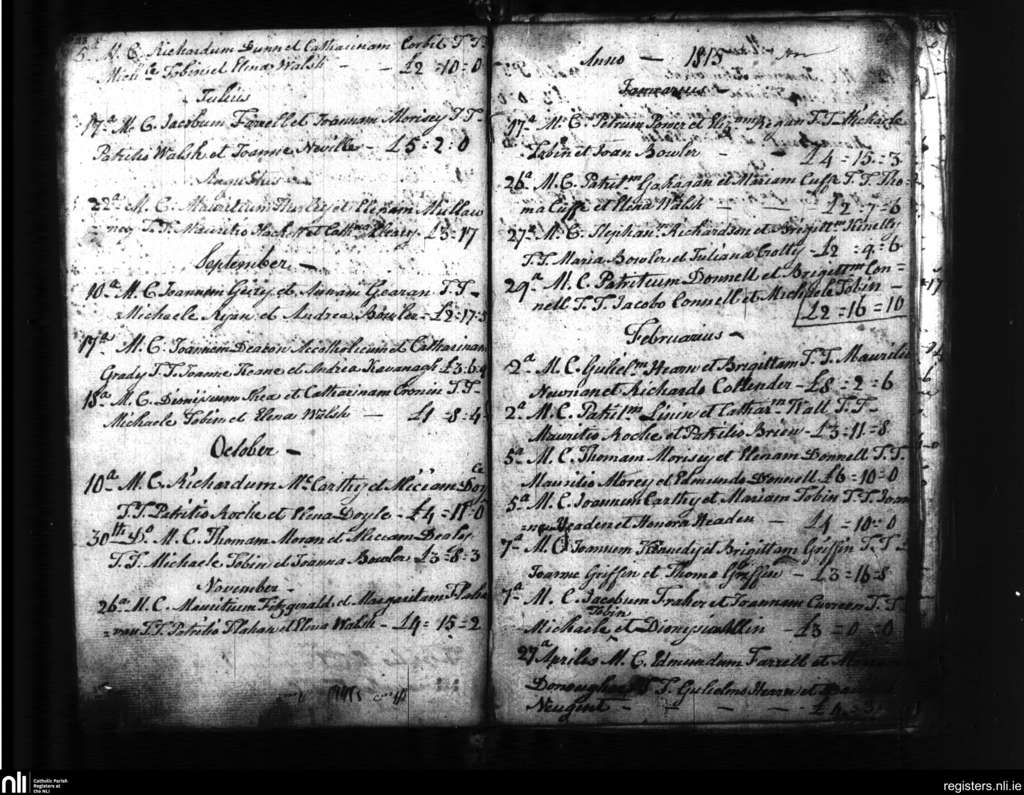 5ª M. C. Richardum Dunn et Catharinam Corbit T. T.
Mich:le Tobin et Elena Walsh — £2=10=0
Julius
17ª M. C. Jacobum Farrell et Joannam Morisey T. T.
Patritio Walsh et Joanna Neville — £5=2=0
Augustus
22ª M. C. Mauritium Hurley et Elenam Mullow
=ney T. T. Mauritio Hackett et Cath:na Cleary £3=17
September —
10ª M. C. Joannem Geiry et Annam Gearan T. T.
Michaele Ryan et Andrea Bowler = £2=17=3
17ª M. C. Joannem Deacon Accatholicum et Catharinam
Grady T. T. Joanne Keane et Andrea Kavanagh £3=6=
18ª M. C. Dionisium Shea et Catharinam Cronin T. T.
Michaele Tobin et Elena Walsh — £1=8=4
October —
10ª M. C. Richardum Mc Carthy et Aliciam Doy
T. T. Patritio Roche et Elena Doyle — £4=11=0
30th Do M. C. Thomam Moran et Aliciam Dealy
T. T. Michaele Tobin et Joanna Bowler £3=8=3
November —
26ª M. C. Mauritium Fitzgerald et Margaritam Flaha
=van T. T. Patritio Flahan et Elena Walsh — £4=15=2
Anno — 1815
Januarius —
17ª M. C. Petrum Power et Regan T. T. Michaele
Tobin et Joan Bowler — £4=15=3
26ª M. C. Patit:m Gahagan et Mariam Cuffe T. T. Tho=
ma Cuffe et Elena Walsh — £2=7=6
27ª M. C. Stephan:m Richardson et Brigitt:m Kinelly
T. T. Maria Bowler et Juliana Crotty — £2=9=6
29ª M. C. Patritium Donnell et Brigittam Con=
nell T. T. Jacobo Connell et Michaele Tobin —
£2=16=10
Februarius —
2ª M. C. Guliel:m Hearn et Brigittam T. T. Mauritio
Nawnan et Richardo Collender — £8=2=6
2ª M. C. Patit:m Linin et Cathar:m Wall T. T.
Mauritio Roche et Patritio Brien — £3=11=8
5ª M. C. Thomam Morisey et Elenam Donnell T. T.
Mauritio Morey et Edmundo Donnell £6=10=0
5ª M. C. Joannem Carthy et Mariam Tobin T. T. Joan=
=ne Headen et Honora Headen — £4=10=0
7ª M. C. Joannem Kennedy et Brigittam Griffin T. T.
Joanne Griffin et Thoma Griffin — £3=16=8
7ª M. C. Jacobum Traher et Joannam Curreen T. T.
Tobin
Michaele et Dionisio Allin — £3=0=0
27ª Apriles M. C. Edmundum Farrell et
Donoughue T. T. Gulielmo Hearn et
Neugent — — — £4=3
nli
Catholic Parish
Registers at
the NLI
registers.nli.ie